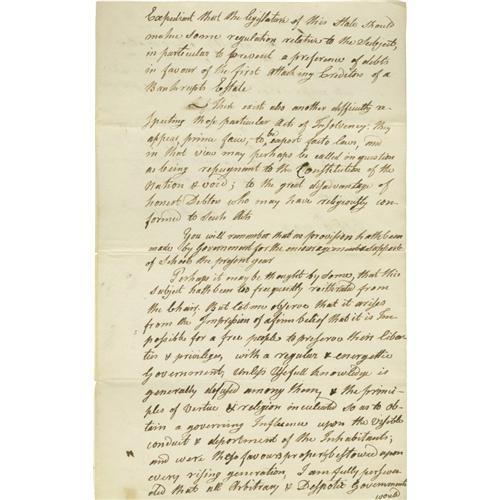 Expedient that the legislature of this State should
make some regulation relative to the Subject,
in particular to prevent a preference of debts
in favour of the first attaching Creditors of a
Bankrupts Estate
There exist also another difficulty re-
specting those particular Acts of Insolvency: they
appear, prima facie, to be expost facto laws, and
in that view may perhaps be called in question
as being repugnant to the Constitution of the
Nation & void; to the great disadvantage of
honest Debtors who may have religiously con-
formed to such Acts
You will remember that no provision hath been
made by Government for the encouragement & support
of Schools the present year
Perhaps it may be thought by some, that this
subject hath been too frequently reiterated from
the Chair. But let me observe that it arises
from the Impression of a firm belief that it is Im-
possible for a free people to preserve their Liber-
ties & privileges, with a regular & energetic
Government, Unless Usefull knowledge is
generally defused among them, & the princi-
ples of virtue & religion inculcated so as to ob-
tain a governing Influence upon the visible
conduct & deportment of the Inhabitants;
and were these favours properly bestowed upon
every rising generation, I am fully perswa-
ded that all Arbitrary & Despotic Governments
would